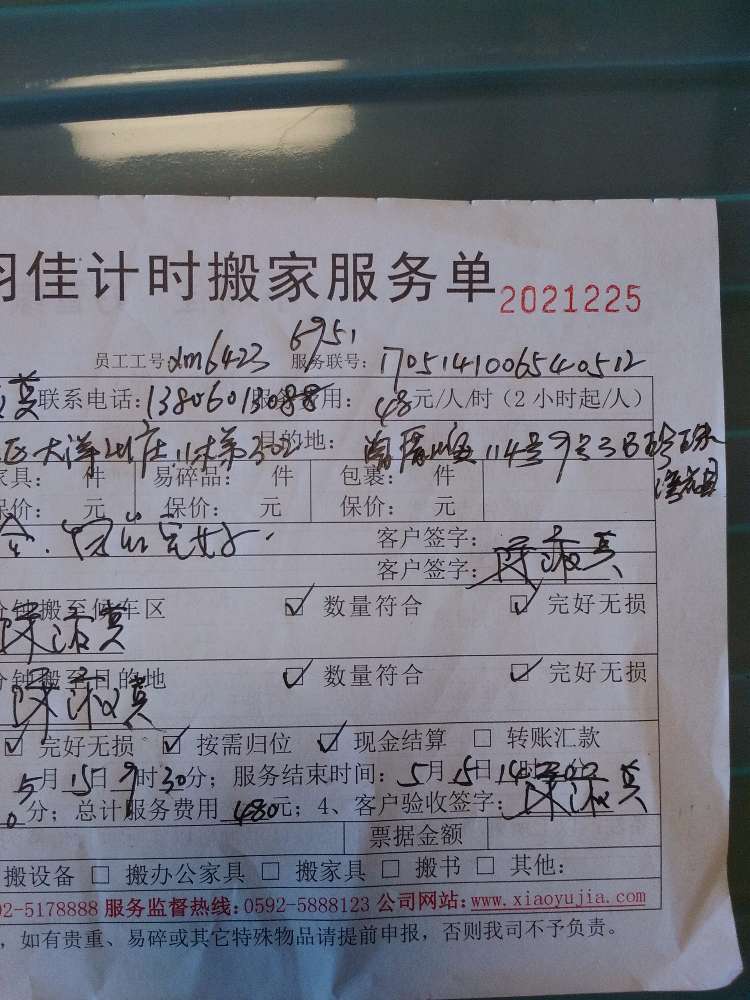 佳计时搬家服务单 2021225
6951
员工工号: xm6423 服务联号: 1705141006540512
英 联系电话: 13806013088 服务费用: 48元/人/时（2小时起/人）
区大洋山庄 302 目的地: 114号9号3B珍珠
家具： 件 易碎品： 件 包裹： 件
保价： 元 保价： 元 保价： 元
完好. 客户签字:
客户签字: 陈淑英
分钟搬至停车区 ☑ 数量符合 ☑ 完好无损
陈淑英
分钟搬至目的地 ☑ 数量符合 ☑ 完好无损
陈淑英
☑ 完好无损 ☑ 按需归位 ☑ 现金结算 □ 转账汇款
5月15日9时30分；服务结束时间：5月15日14时30分
0分；总计服务费用 480元；4、客户验收签字：陈淑英
票据金额
搬设备 □ 搬办公家具 □ 搬家具 □ 搬书 □ 其他:
92-5178888 服务监督热线:0592-5888123 公司网站:www.xiaoyujia.com
，如有贵重、易碎或其它特殊物品请提前申报，否则我司不予负责。